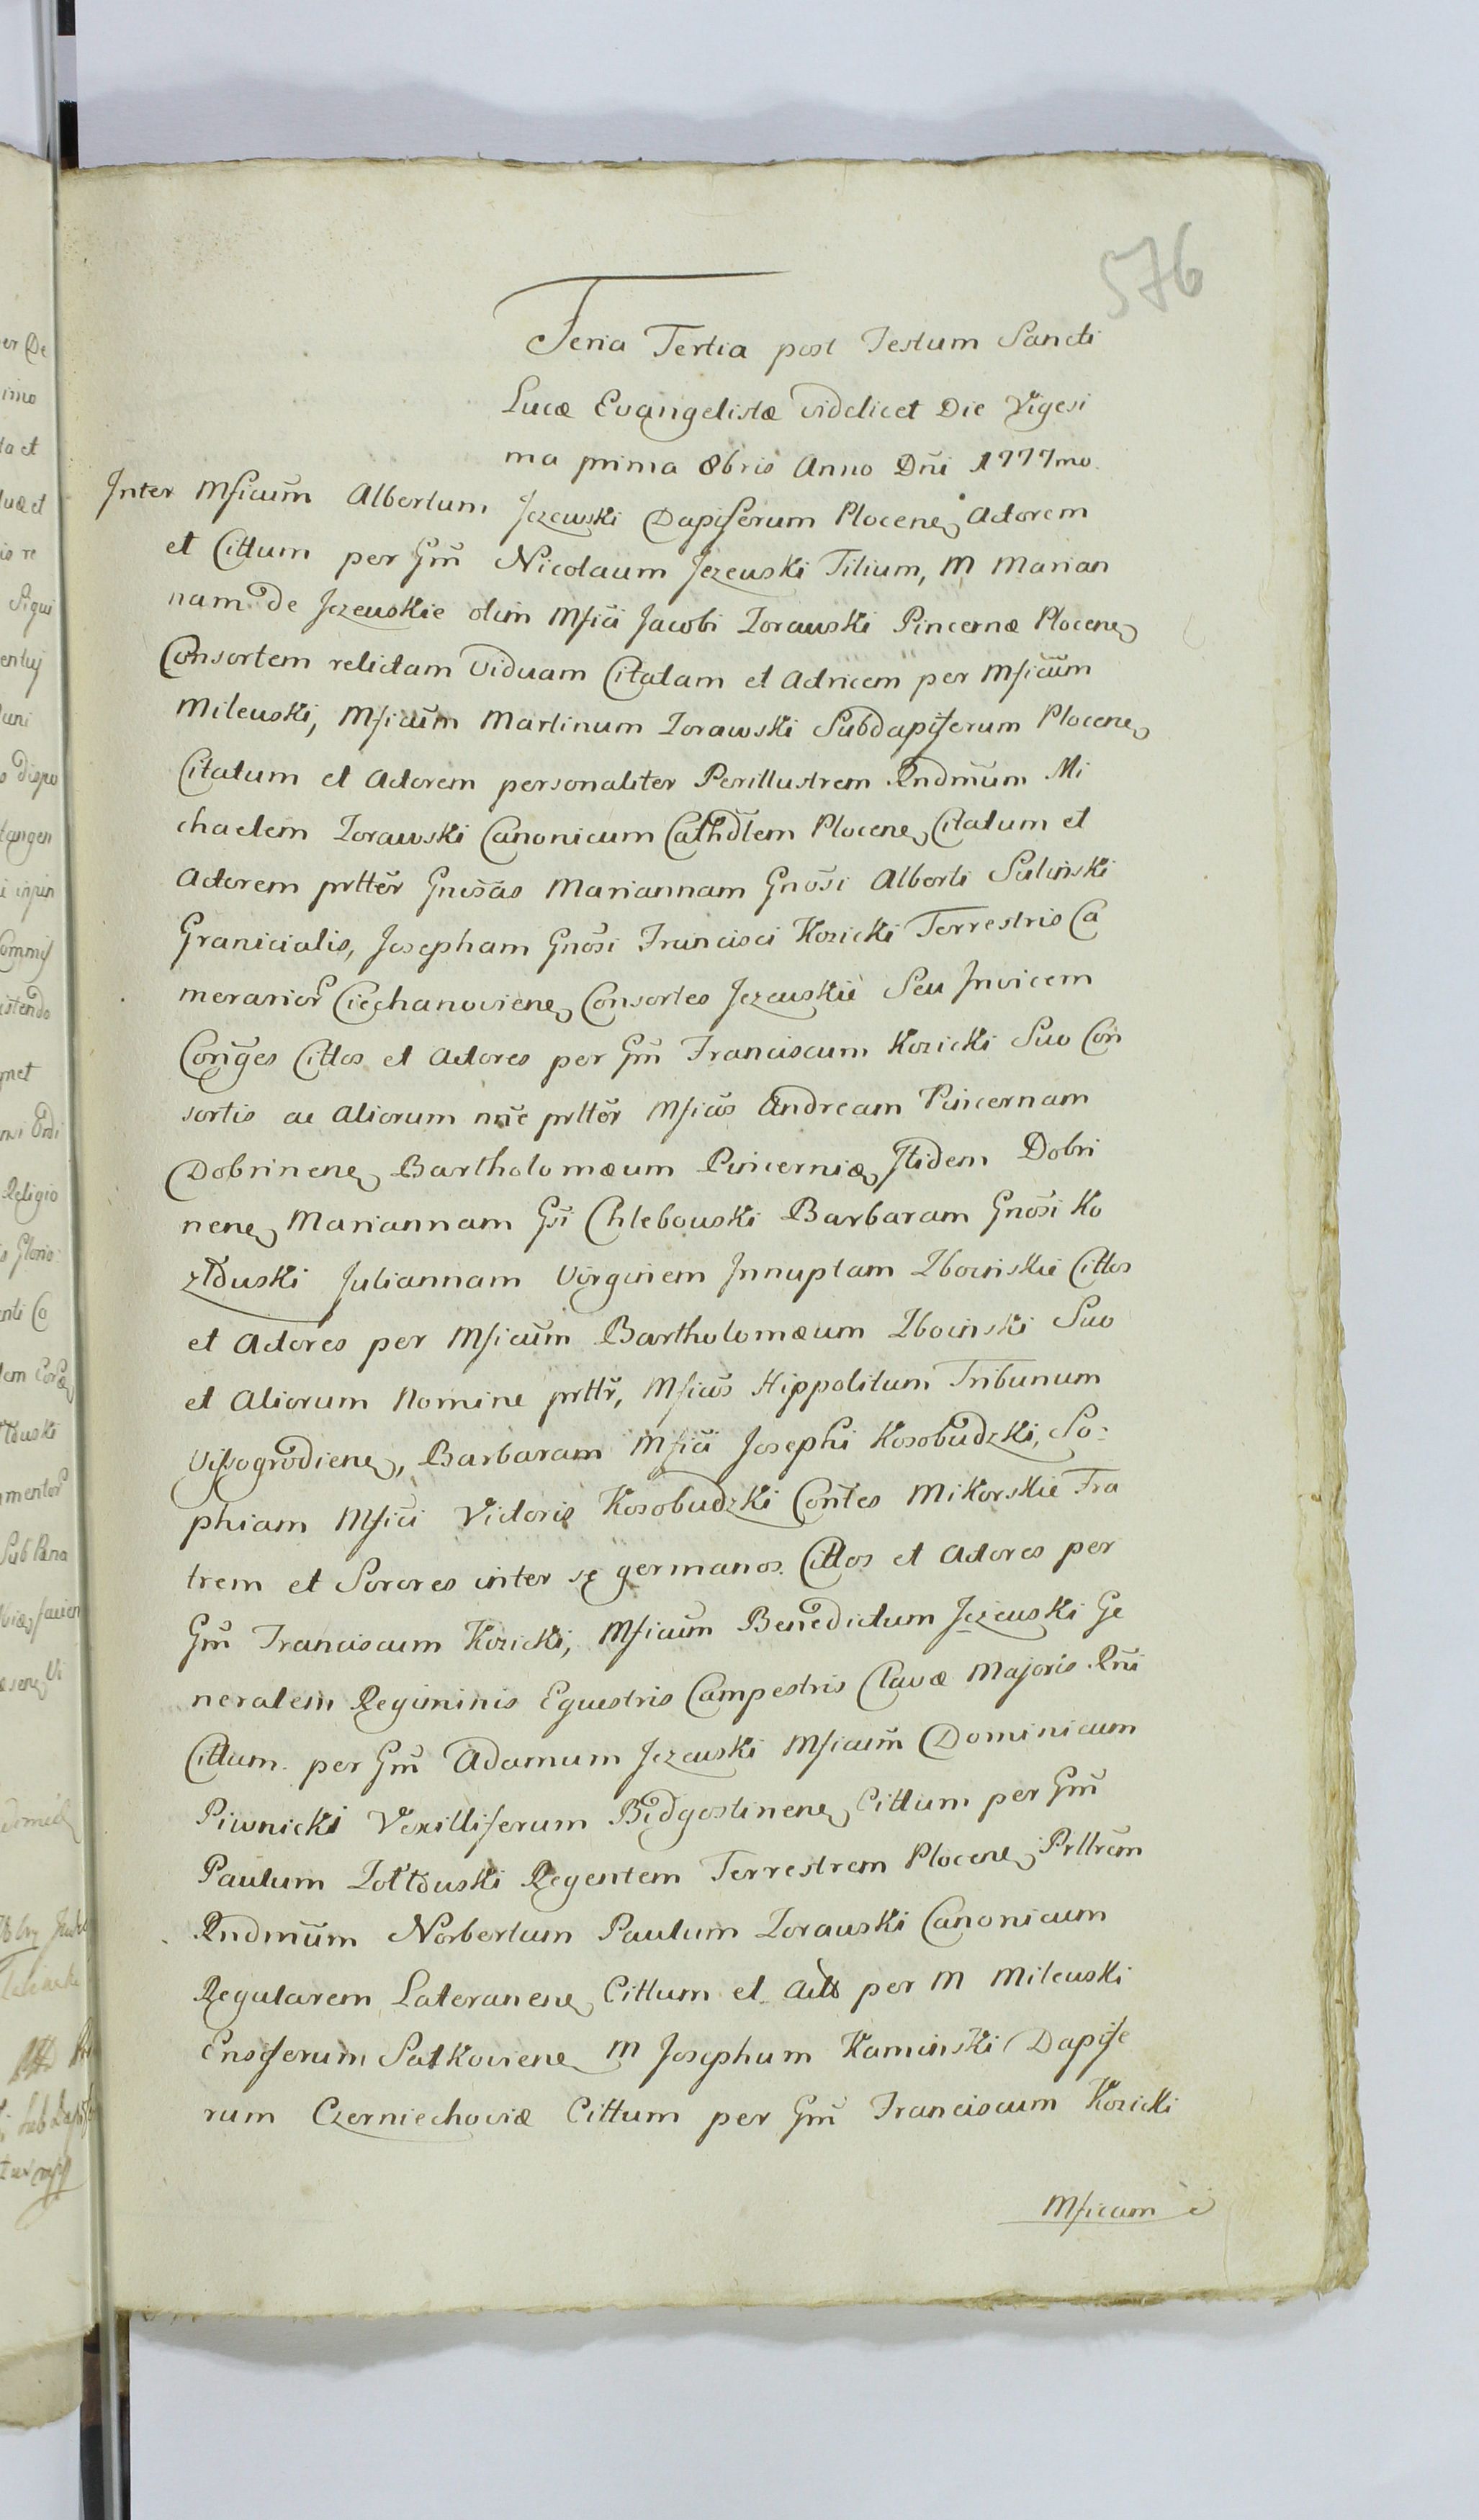 576
Feria Tertia post Festum Sancti
Lucæ Evangelistæ videlicet Die Vigesi
ma prima 8bris Anno Dñi 1777mo
Inter Mficum Albertum Jezewski Dapiferum Plocene, Actorem
et Cittum per Gm̃ Nicolaum Jezewski Filium, M Marian
nam de Jezewskie olim Mfici Jacobi Zorawski Pincernæ Plocene,
Consortem relictam Viduam Citatam et Actricem per Mficũm
Milewski, Mficũm Martinum Zorawski Subdapiferum Plocene,
Citatum et Actorem personaliter Perillustrem Rndmũm Mi
chaelem Zorawski Canonicum Cathdlem Plocene, Citatum et
Actorem prtter Gnosãs Mariannam Gnõsi Alberti Sulinski
Granicialis, Josepham Gnõsi Francisci Kozicki Terrestris Ca
merarior Ciechanoviene, Consortes Jezewskie Seu Invicem
Conjges Cittos et Actores per Gm̃ Franciscum Kozicki Suo Con
sortis ac Aliorum nñe prttẽr Mficõs Andream Pincernam
Dobrinene, Bartholomæum Pincernię, Itidem Dobri
nene, Mariannam Gsi Chlebowski Barbaram Gnõsi Ko
złduski Juliannam Virginem Innuptam Zboinskie Cittos
et Actores per Mficũm Bartholomæum Zboinski Suo
et Aliorum Nomine prttr̃, Mficõs Hippolitum Tribunum
Vissogrodiene, Barbaram Mfici Josephi Kosobudzki, So:
phiam Mfici Victoris Kosobudzki Contes Mikorskie Fra
trem et Sorores inter se germanos. Cittos et Actores per
Gm̃ Franciscum Kozicki, Mficũm Benedictum Jezewski Ge
neralem Regiminis Equestris Campestris Clavæ Majoris Rñi
Cittum. per Gm̃ Adamum Jezewski Mficũm Dominicum
Piwnicki Vexilliferum Bidgostinene, Cittum per Gm̃
Paulum Zołłduski Regentem Terrestrem Plocene, Prllrẽm
Rndmũm Norbertum Paulum Zorawski Canonicum
Regularem Lateranene, Cittum et Act per M Milewski
Ensiferum Palkoviene M Josephum Kaminski Dapife
rum Czerniechoviæ Cittum per Gm̃ Franciscum Kozicki
Mficum